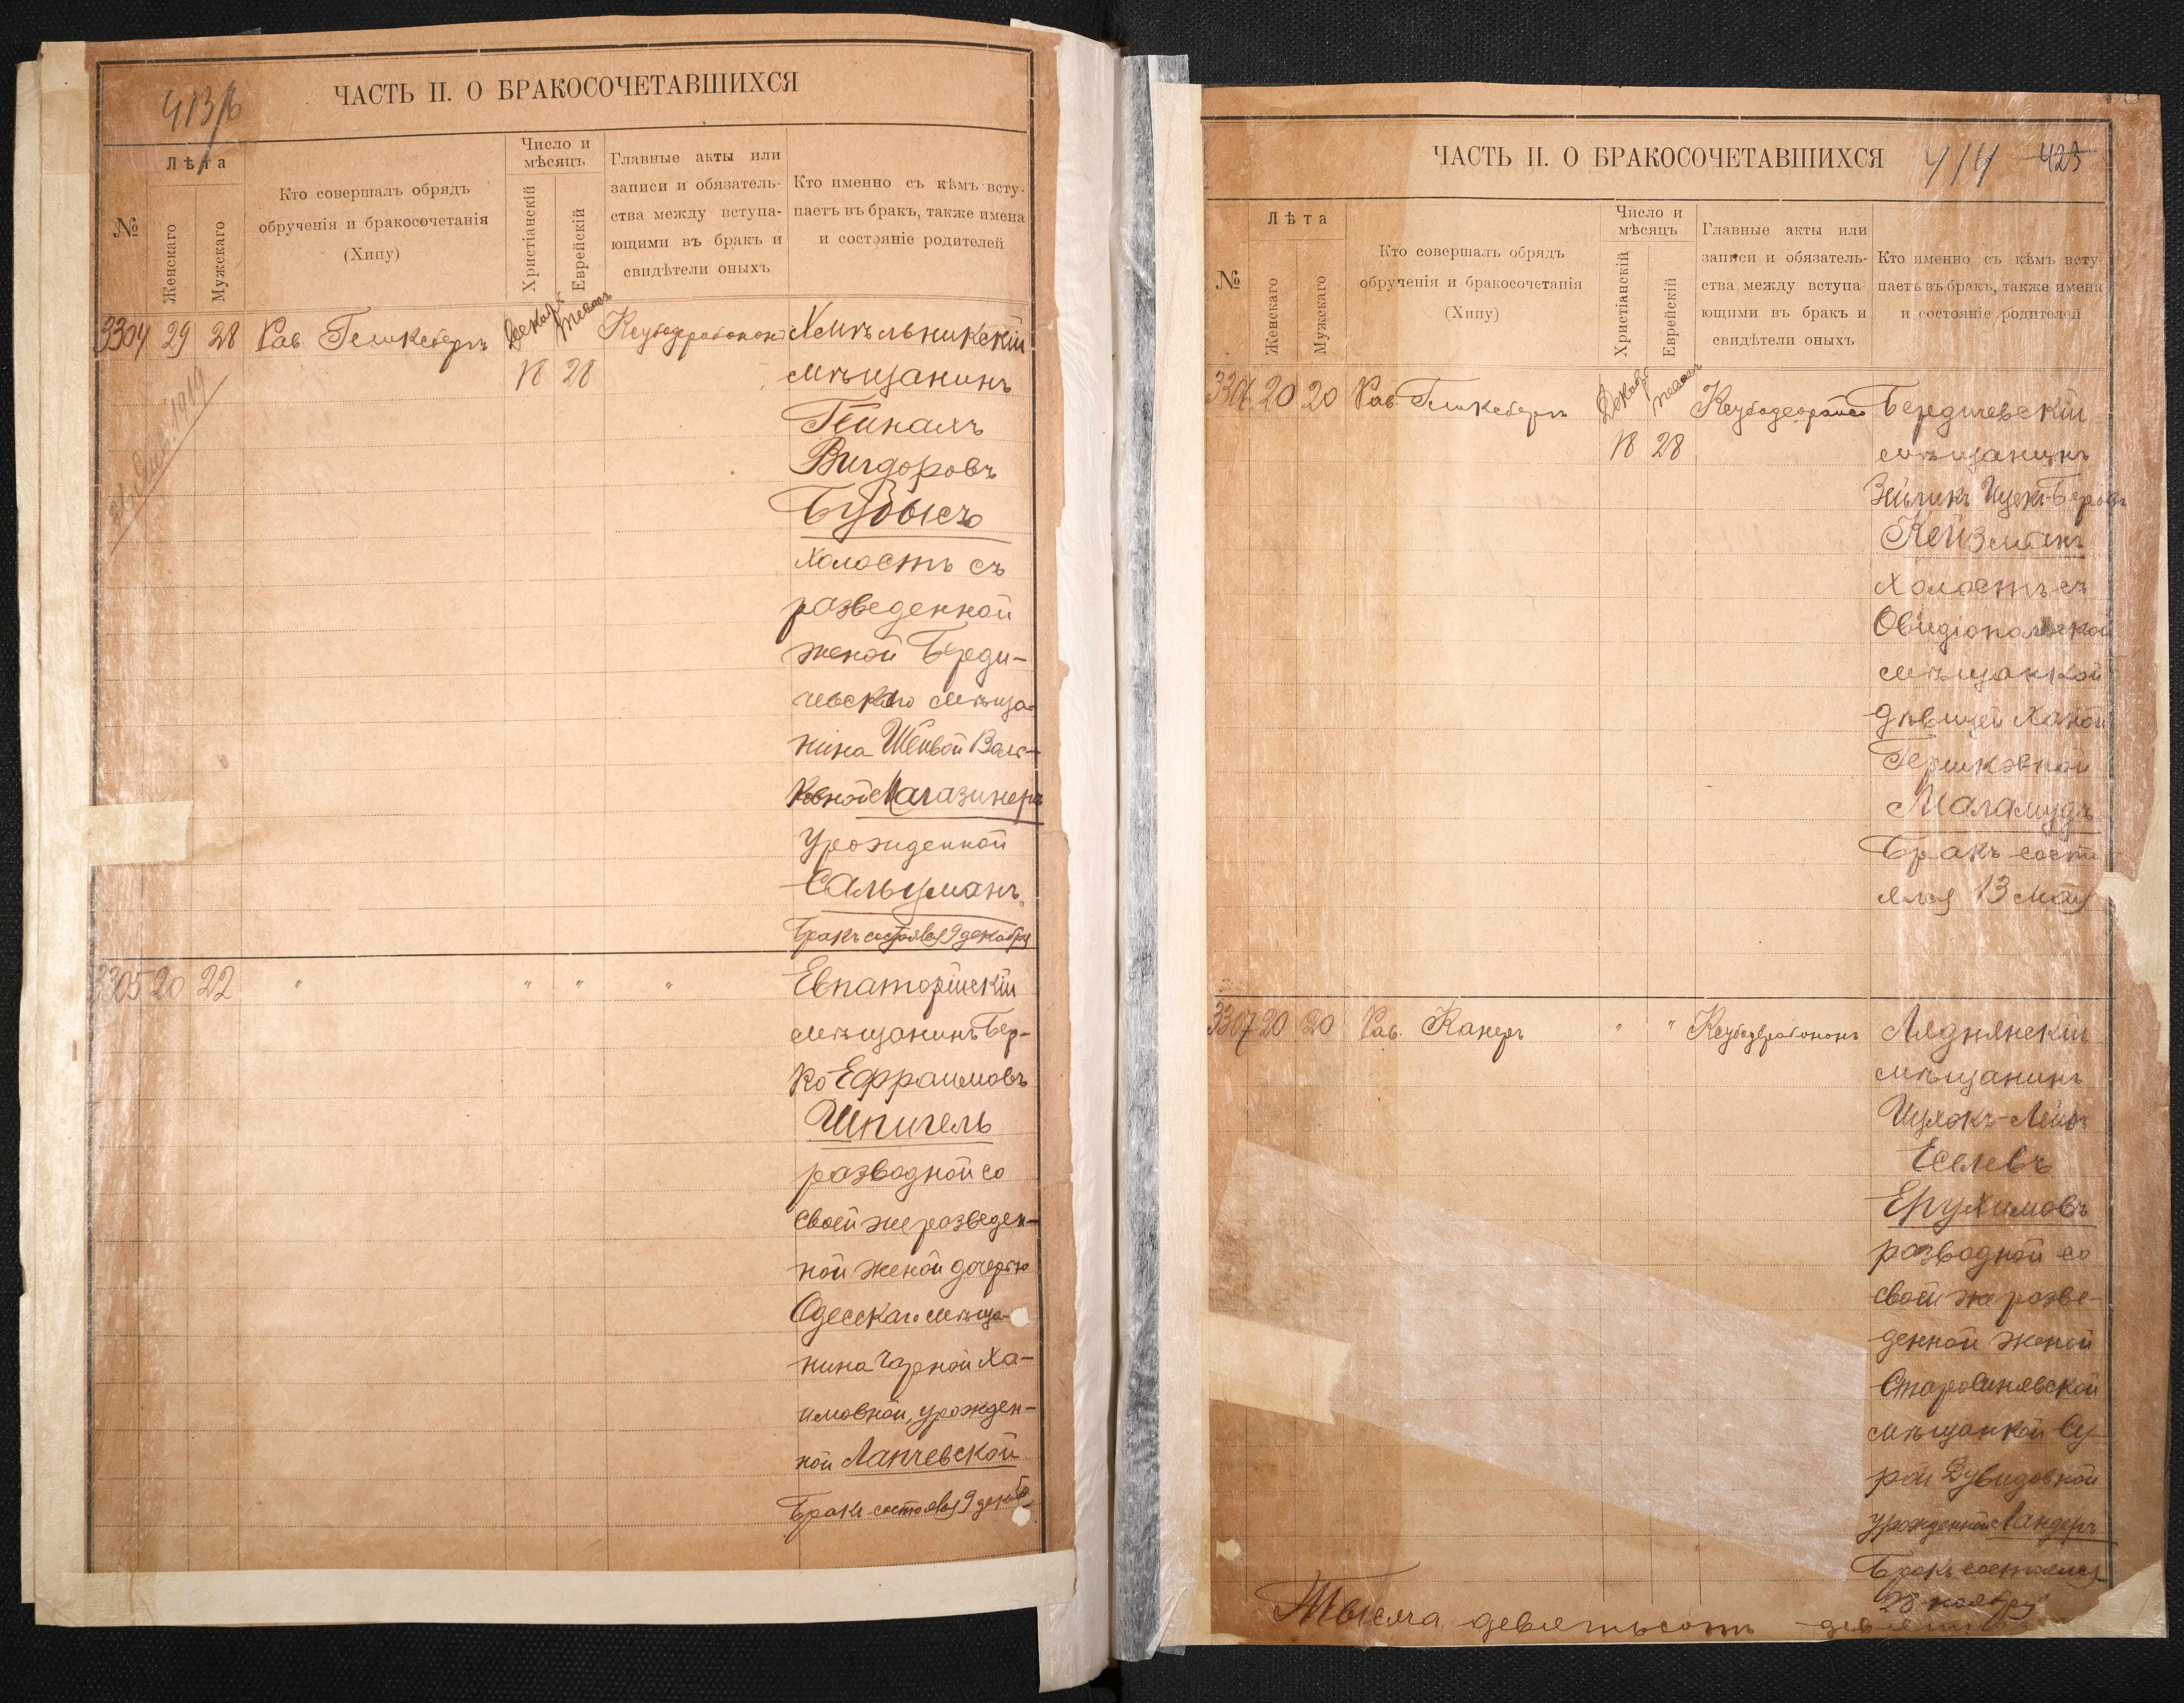 413/б
ЧАСТЬ II. О БРАКОСОЧЕТАВШИХСЯ
№
Лѣта
Женскаго
Мужскаго
Кто совершалъ обрядъ
обрученія и бракосочетанія
(Хипу)
Число и
мѣсяцъ
Христіанскій
Еврейскій
Главные акты или
записи и обязатель-
ства между вступа-
ющими въ бракъ и
свидѣтели оныхъ
Кто именно съ кѣмъ всту-
паетъ въ бракъ, также имена
и состояніе родителей
3304 29 28 Рав. Гешкебергъ
18 28
Хмѣльникскій
мѣщанинъ
Вигдоровъ
холостъ съ
разведенной
женой Берди-
чевскаго мѣща-
нина Шейвой Воль-
Магазинеръ
урожденной
Сальцманъ
Бракъ состоялся 9 декабря
3305 20 22 " " " "
Евпаторійскій
мѣщанинъ Бер-
ко Ефраимовъ
Шпигель
разводной со
своей же разведен-
ной женой дочерью
Одесскаго мѣща-
нина Чарной Ха-
имовной, урожден-
ной Лапчевской
Бракъ состоялся 9 декабр
ЧАСТЬ II. О БРАКОСОЧЕТАВШИХСЯ
414 423
№
Лѣта
Женскаго
Мужскаго
Кто совершалъ обрядъ
обрученія и бракосочетанія
(Хипу)
Число и
мѣсяцъ
Христіанскій
Еврейскій
Главные акты или
записи и обязатель-
ства между вступа-
ющими въ бракъ и
свидѣтели оныхъ
Кто именно съ кѣмъ всту-
паетъ въ бракъ, также имена
и состояніе родителей
3306 20 20 Рав. Гешкебергъ
18 28
Бердичевскій
мѣщанинъ
Зейликъ Ицекъ-Беровъ
Кейзманъ
холостъ съ
Овидіопольской
мѣщанкой
дѣвицей Ханой
Гершковной
Маламудъ
Бракъ состо-
ялся 13 Мая
3307 20 20 Рав. Канеръ " "
Ляднянскій
мѣщанинъ
Еселевъ
Ерухимовъ
разводной со
своей же разве-
денной женой
Старосинявской
мѣщанкой Су-
рой Дувидовной
урожденной Ландеръ
Бракъ состоялся
28 ноября
Тысяча девятьсотъ